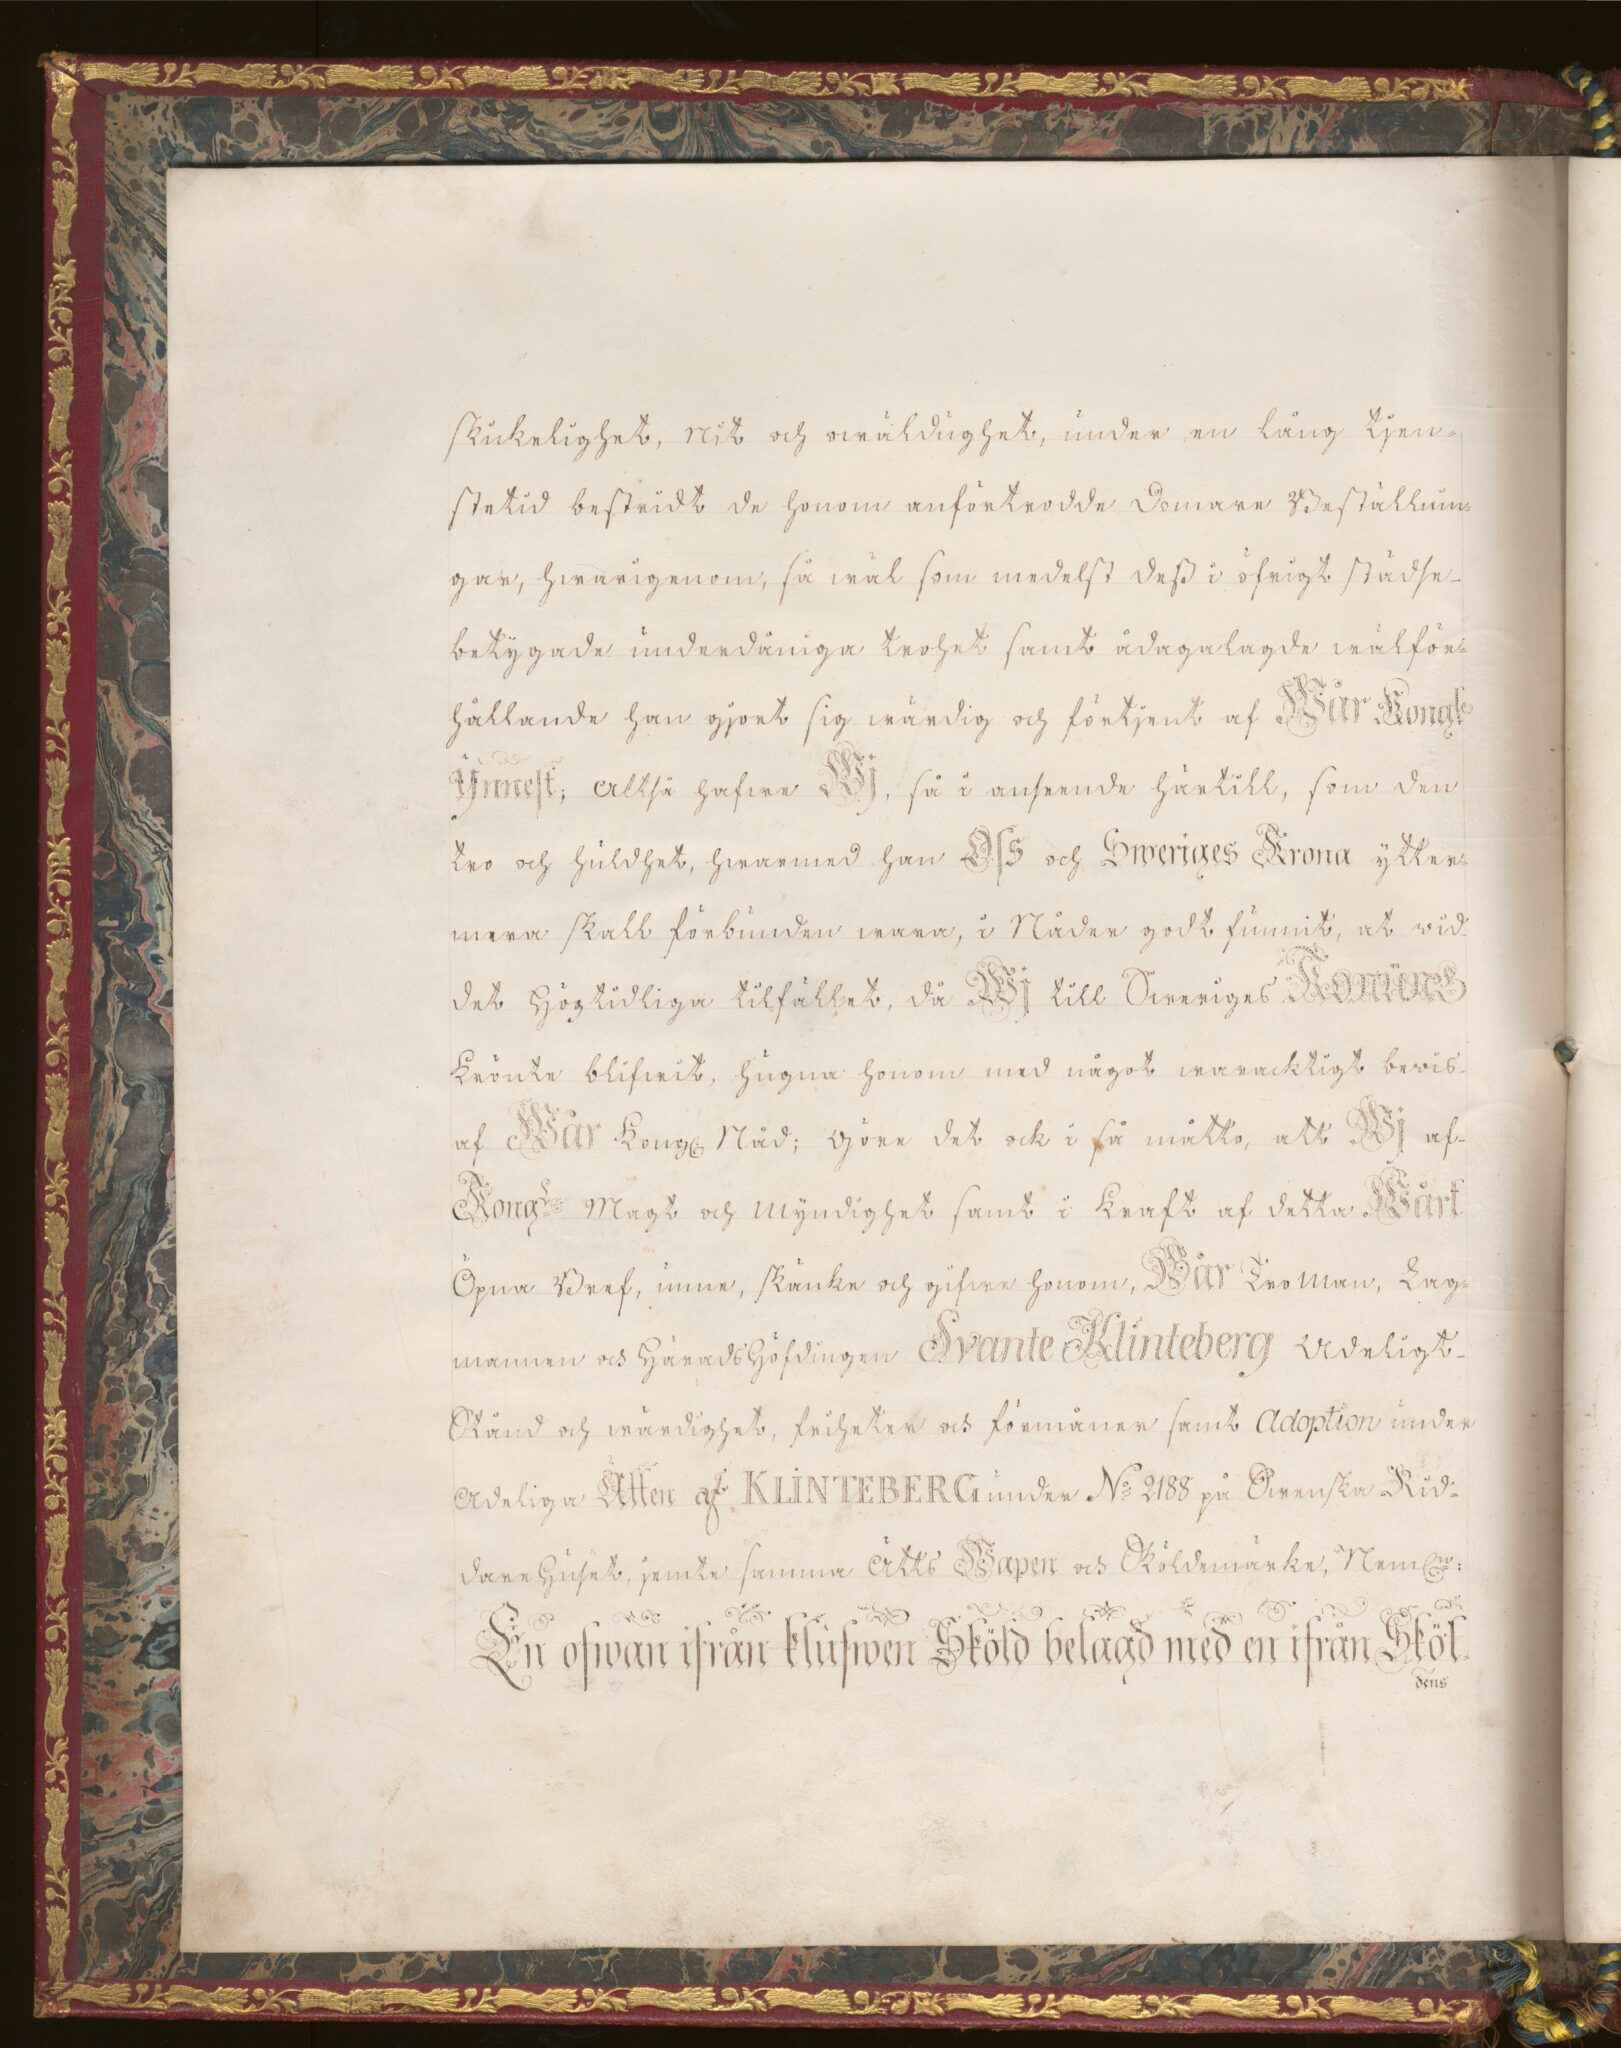 skickelighet, Nit och owäldughet, under en lång tjen-
stetid bestridt de honom anförtrodde Domare Beställnin-
gar, hwarigenom, så wäl som medelst deß i öfrigt städse-
betygade underdåniga trohet samt ådagalagde wälför-
hållande han gjort sig wärdig och förtjent af Wår Kongl.
Ynnest; Altså hafwe Wj, så i anseende härtill, som den
tro och huldhet, hwarmed han Oss och Sweriges Krona ytter-
mera skall förbunden wara, i Nåder godt funnit, at wid
det Högtidliga tilfället, då Wj till Sweriges Konung
Krönte blifwit, hugna honom med något waracktigt bewis
af Wår Kongl. Nåd; Göre det ock i så måtto, att Wj af
Kongl. Magt och Myndighet samt i Kraft af detta Wårt
Öpna Bref, unne, skänke och gifwe honom, Wår Tro Man, Lag-
mannen och HäradsHöfdingen Svante Klinteberg Adeligt
Stånd och wärdighet, friheter och förmåner samt Adoption under
Adeliga Ätten af KLINTEBERG under No 2188 på Swenska Rid-
dareHuset, jemte samma Ätts Wapen och Sköldemärke, Neml.:
En ofwan ifrån klufwen Sköld belagd med en ifrån Sköl-
dens